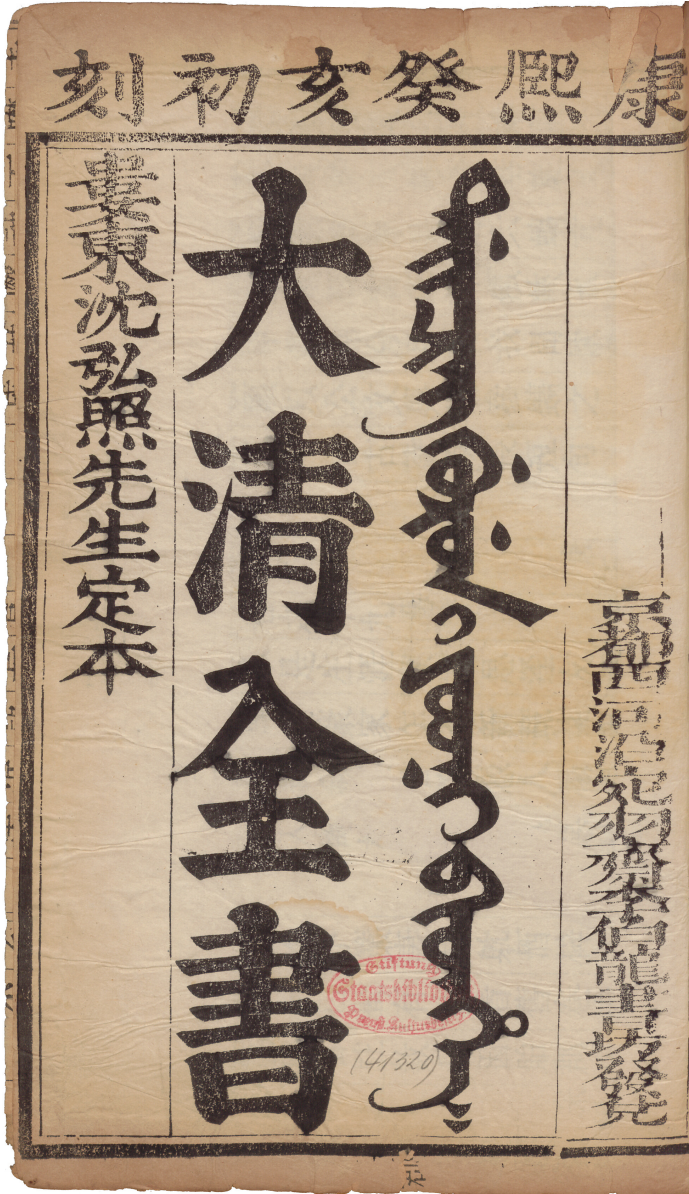 康熙癸亥初刻
京都西河沿宛羽齋李伯龍書坊發兌
ᡩᠠᡳᠴᡳᠩ ᡤᡠᡵᡠᠨ ᡳ ᠶᠣᠣᠨᡳ ᠪᡳᡨᡥᡝ
大清全書
婁東沈弘照先生定本
Stiftung
Staatsbibliothek
Preuß. Kulturbesitz
(41320)